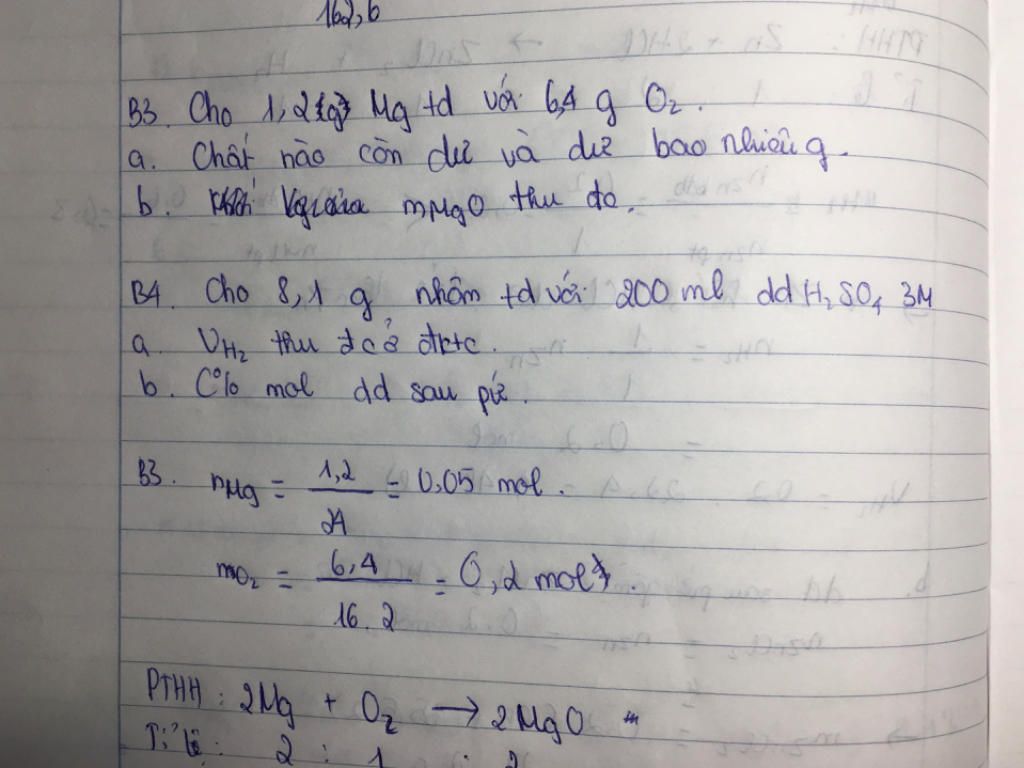 162,6
B3. Cho 1,2 (g) Mg td với 6,4 g O₂.
a. Chất nào còn dư và dư bao nhiêu g.
b. mMgO thu đc.
B4. Cho 8,1 g nhôm td với 200 ml dd H₂SO₄ 3M
a. VH₂ thu đc ở đktc.
b. C% mol dd sau pứ.
B3. nMg = 1,2 / 24 = 0,05 mol.
mO₂ = 6,4 / 16.2 = 0,2 mol.
PTHH: 2Mg + O₂ → 2MgO
Tỉ lệ: 2 : 1 : 2